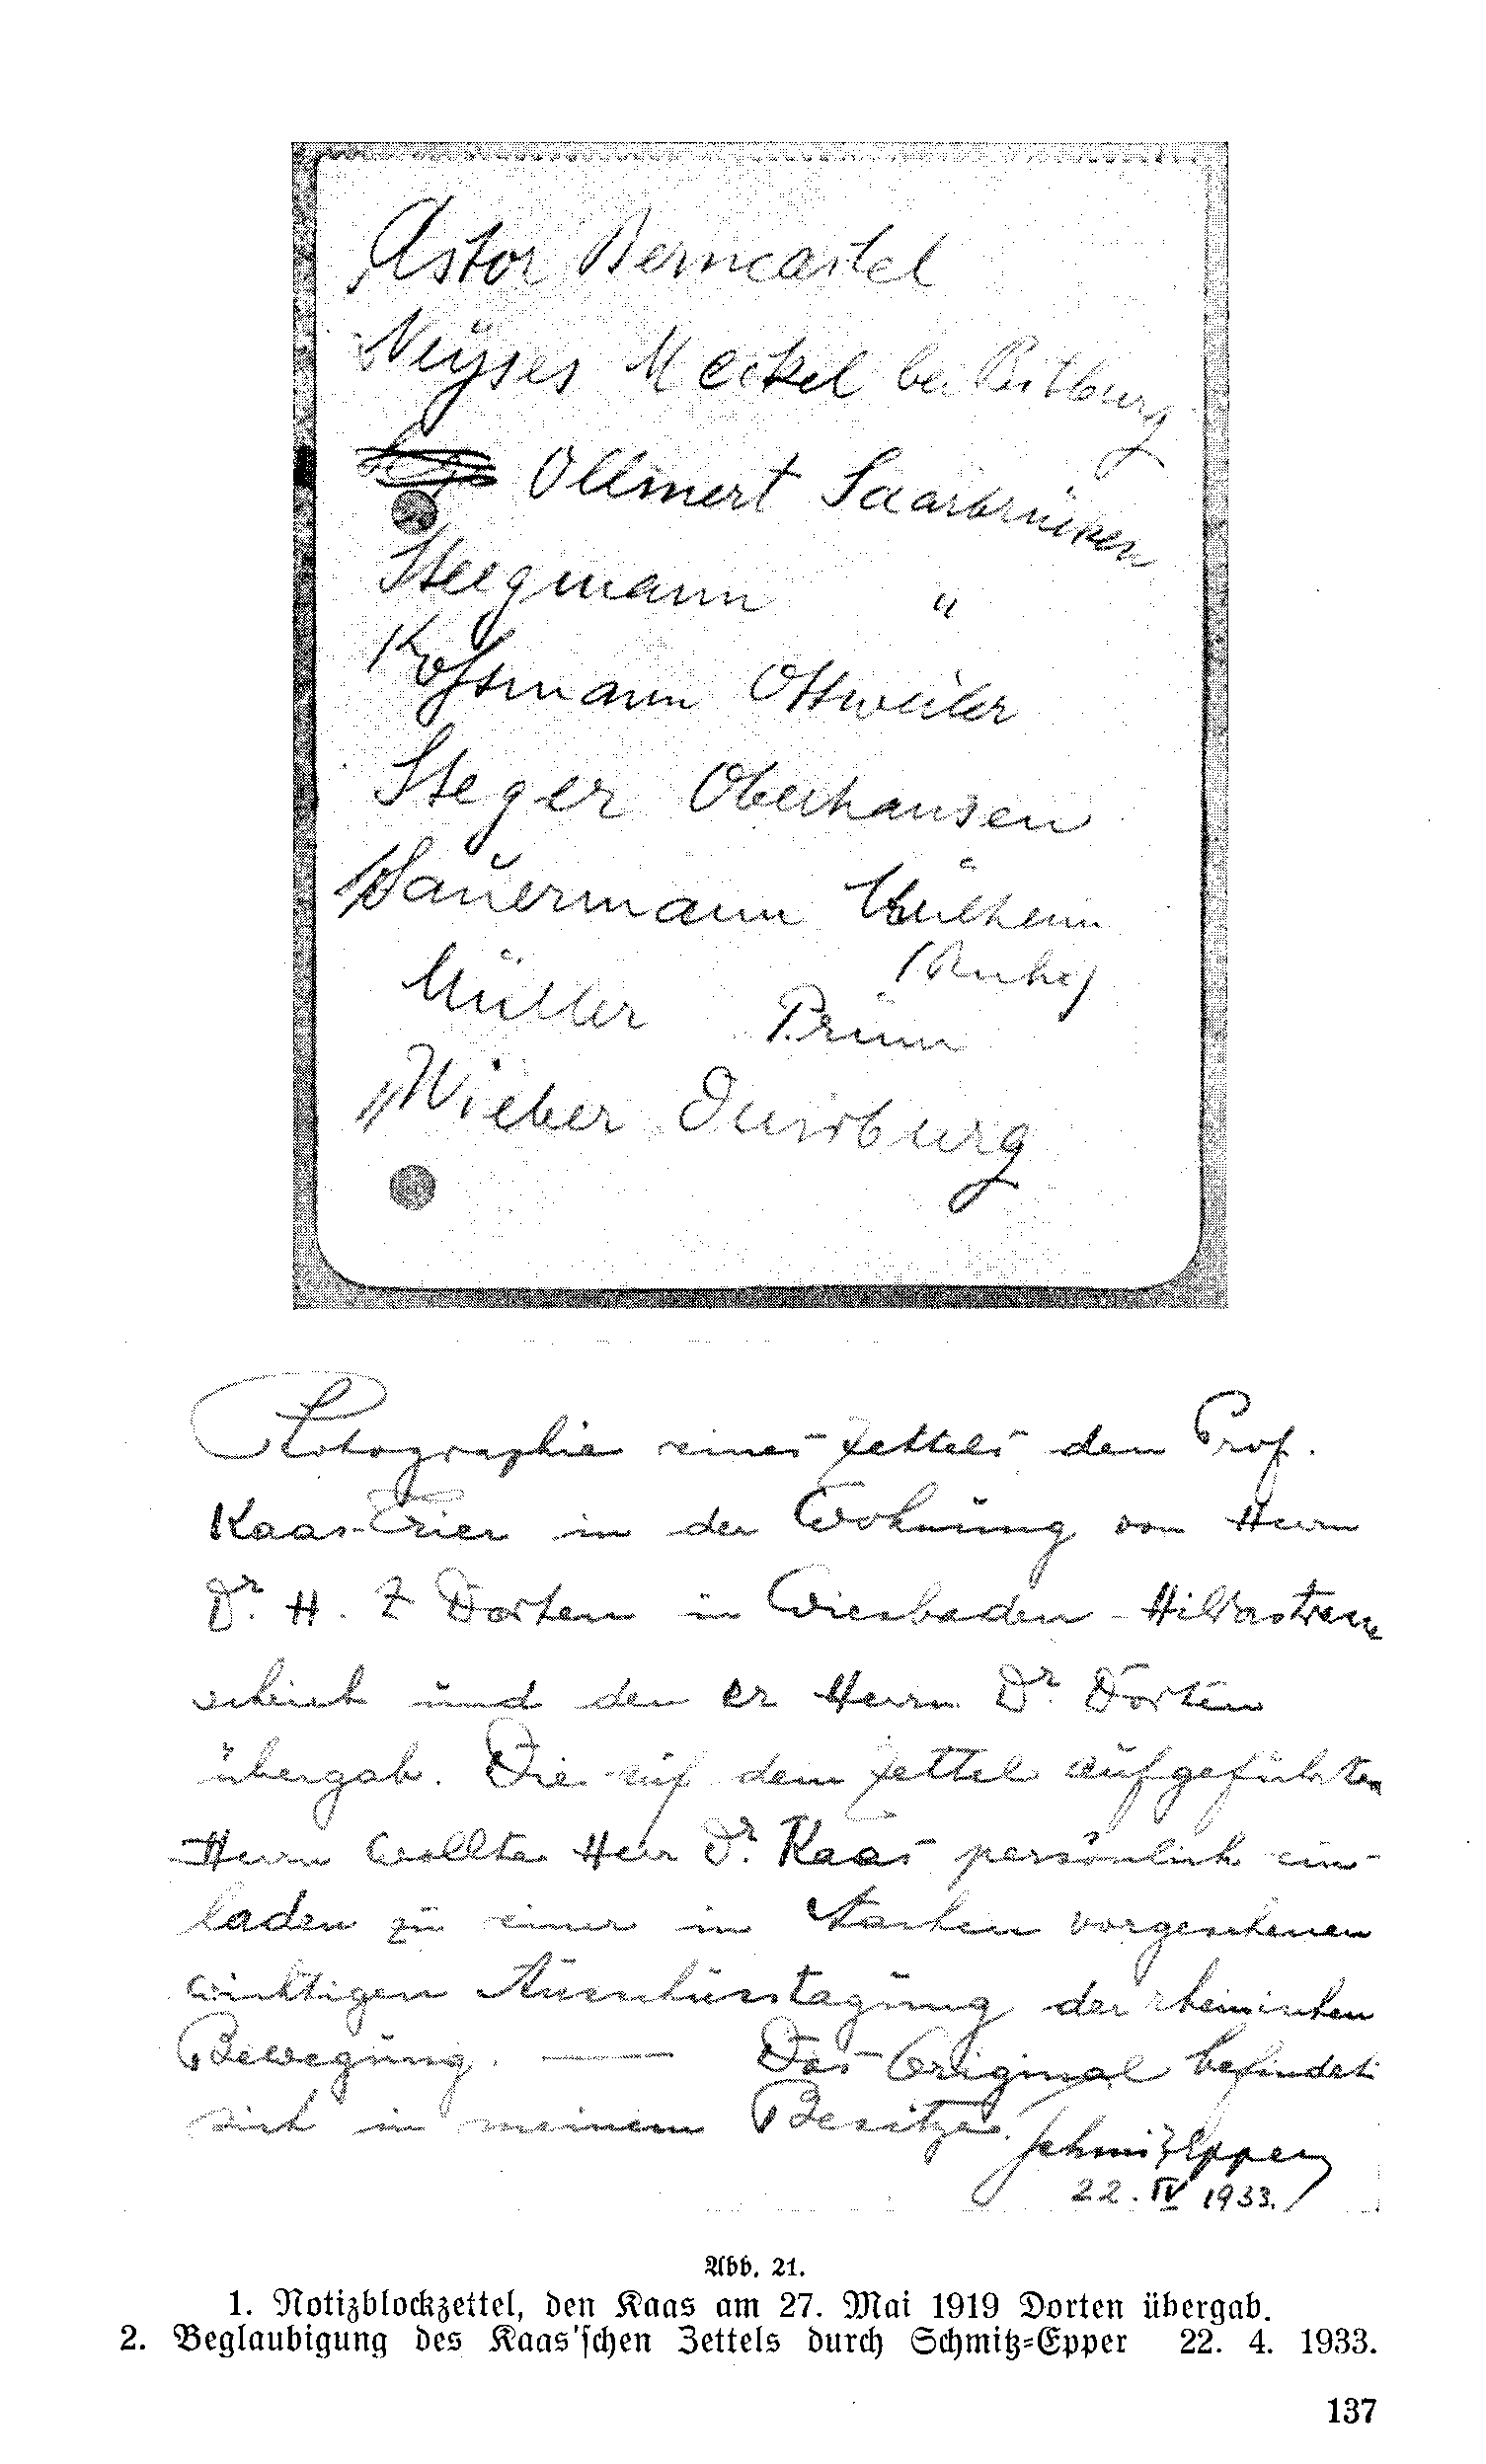 Astor Berncastel
Neyses Meckel bei Bitburg
Ollmert Saarbrücken
Steegmann "
Kossmann Ottweiler
Steger Oberhausen
Sauermann Mülheim
(Ruhr)
Müller Prüm
Wieber Duisburg
Photographie eines Zettels den Prof.
Kaas-Trier in der Wohnung von Herrn
Dr. H. Dorten in Wiesbaden - Hildastrasse
schrieb und den er Herrn Dr. Dorten
übergab. Die auf dem Zettel aufgeführten
Herrn wollte Herr Dr. Kaas persönlich ein-
laden zu einer in Aachen vorgesehenen
wichtigen Ausschusstagung der rheinischen
Bewegung. — Das Original befindet
sich in meinem Besitze. Schmitz Epper
22. IV 1933.
Abb. 21.
1. Notizblockzettel, den Kaas am 27. Mai 1919 Dorten übergab.
2. Beglaubigung des Kaas'schen Zettels durch Schmitz-Epper 22. 4. 1933.
137